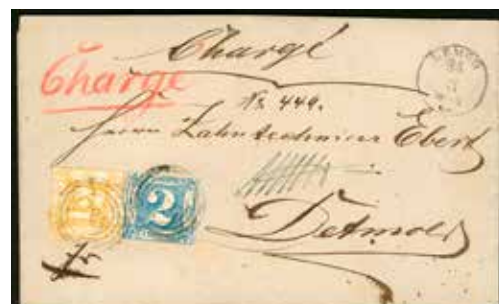 Chargé
Chargé
LEMGO
No 449.
Herrn Zahntechniker Ebert
Detmold
2